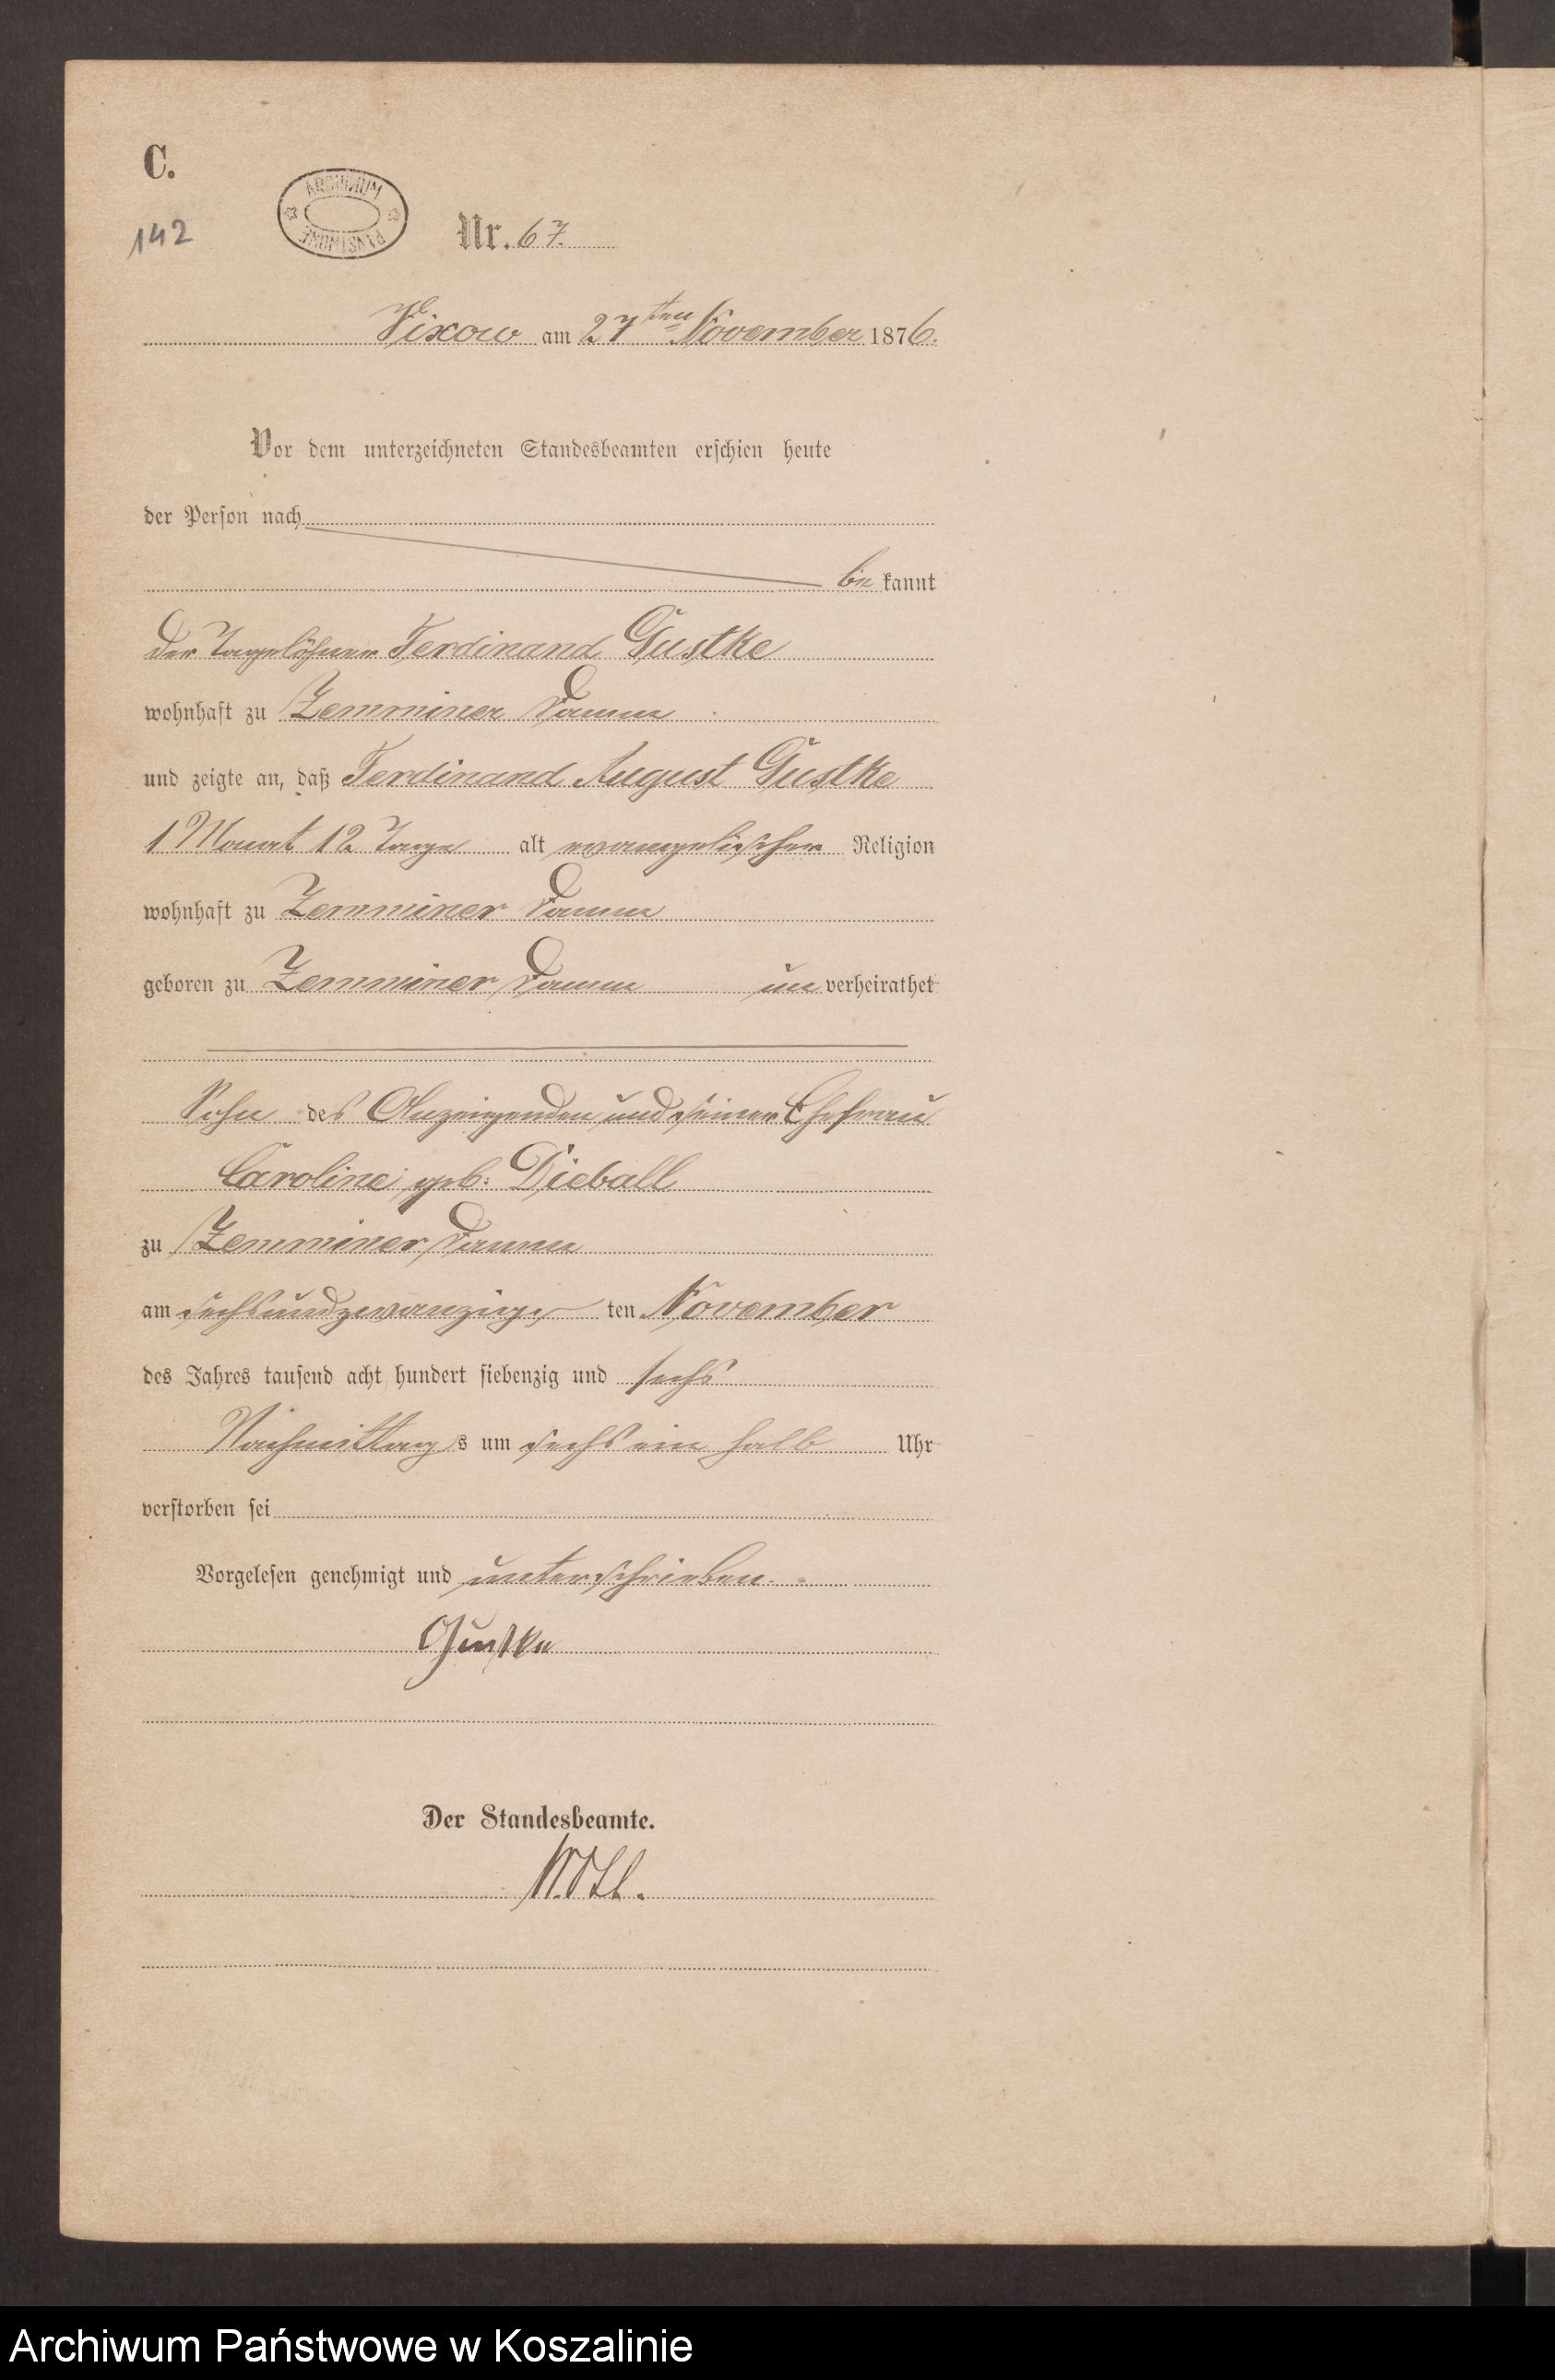 C.
142
ARCHIWUM PAŃSTWOWE
Nr. 67.
Vixow am 27ten November 1876.
Vor dem unterzeichneten Standesbeamten erschien heute
der Person nach
bekannt
der Tagelöhner Ferdinand Gustke
wohnhaft zu Zemminer Damm
und zeigte an, daß Ferdinand August Gustke
1 Monat 12 Tage alt evangelischer Religion
wohnhaft zu Zemminer Damm
geboren zu Zemminer Damm un verheirathet
Sohn des Anzeigenden und seiner Ehefrau
Caroline geb: Dieball
zu Zemminer Damm
am sechsundzwanzigs ten November
des Jahres tausend acht hundert siebenzig und sechs
Nachmittags um sechs ein halb Uhr
verstorben sei
Vorgelesen genehmigt und unterschrieben.
Gustke
Der Standesbeamte.
Archiwum Państwowe w Koszalinie